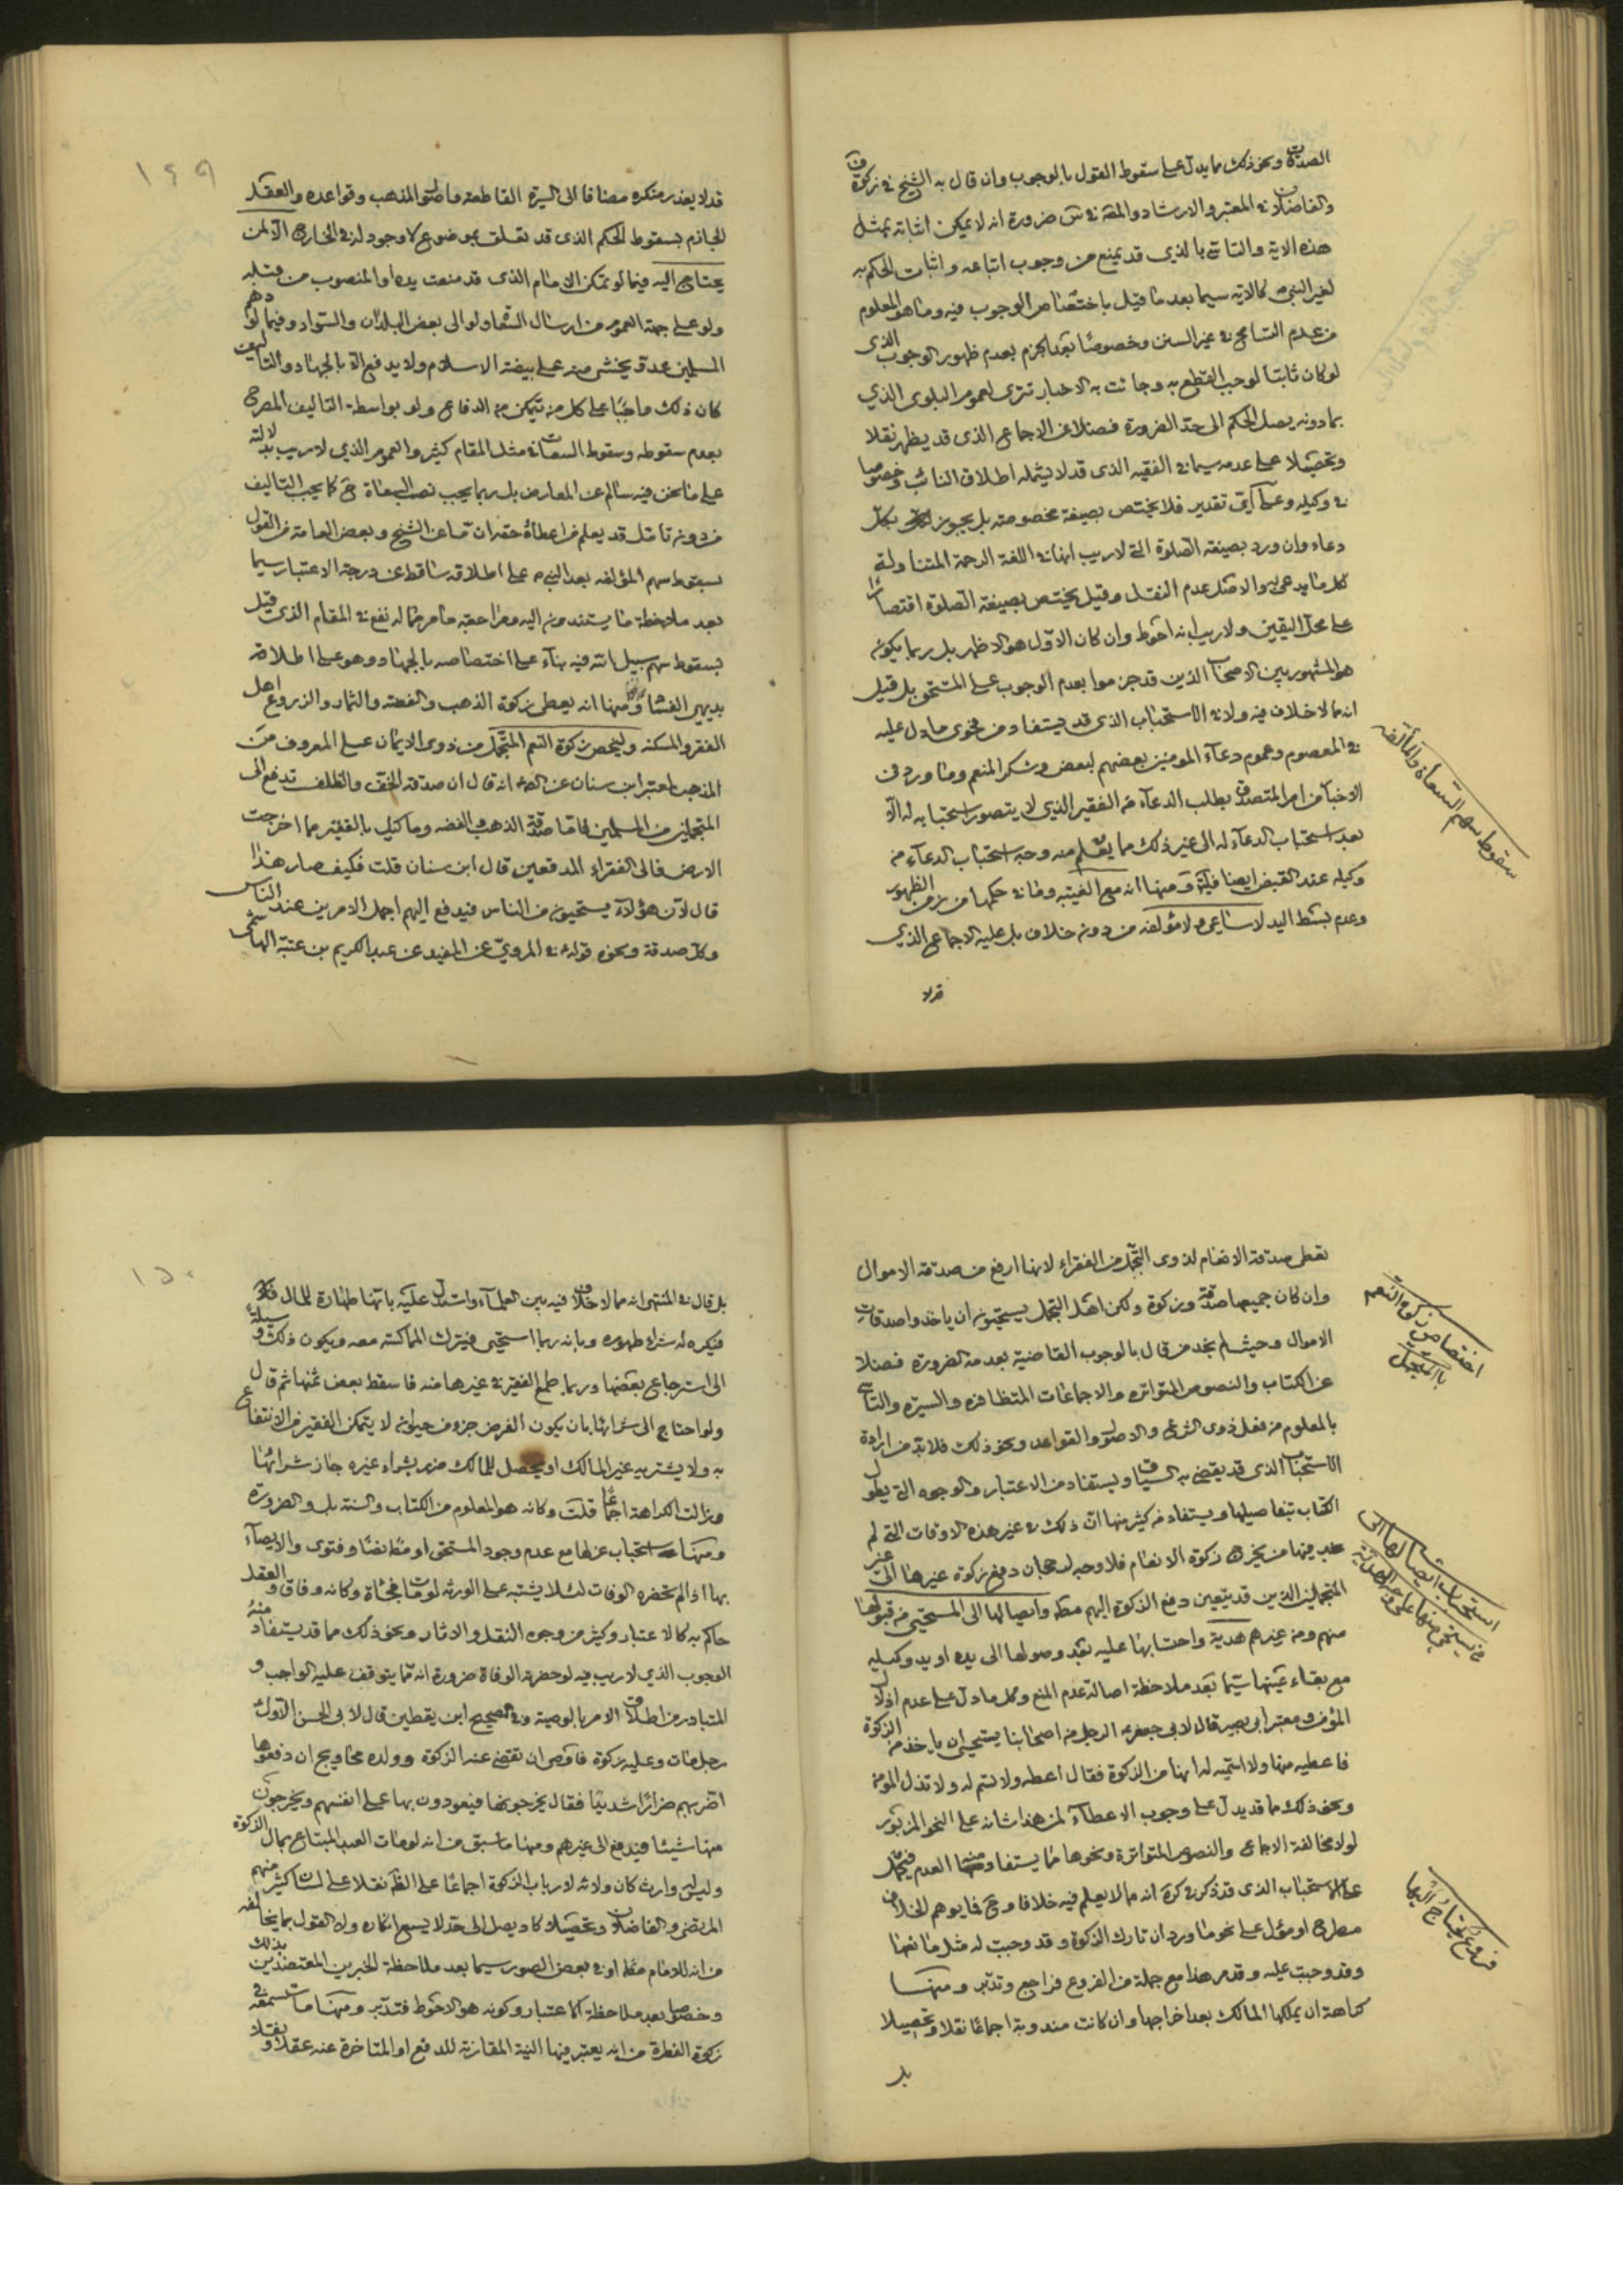 الصدقات ونحو ذلك مما يدل على سقوط القول بالوجوب وان قال به الشيخ في زكوة ف
والفاضلان في المعتبر والارشاد والمقداد في ضرورة انه لا يمكن اثباته بمثل
هذه الاية والتاسي بالذي قد يمنع من وجوب اتباعه واثبات الحكم به
لغير النبي ص كالاية سيما بعد ما قيل باختصاص الوجوب فيه وما هو المعلوم
من عدم التسامح في غير السنن وخصوصا بعد الجزم بعدم ظهور الوجوب الذي
لو كان ثابتا لوجب القطع به وجائت به الاخبار تترى لعموم البلوى الذي
بما دونه يصل الحكم الى حد الضرورة فضلا عن الاجماع الذي قد يظهر نقلا
وتحصيلا على عدمه سيما في الفقيه الذي قد لا يشمله اطلاق النائب وخصوصا
في وكيله وعلى اي تقدير فلا يختص بصيغة مخصوصة بل يجوز بكل
دعاء وان ورد بصيغة الصلوة التي لا ريب انها في اللغة الرحمة المتناولة
لكل ما يدعى به والاصل عدم النقل وقيل يختص بصيغة الصلوة اقتصارا
على محل اليقين ولا ريب انه احوط وان كان الاول هو الاظهر بل ربما يكون
هو المشهور بين الاصحاب الذين قد جزموا بعدم الوجوب على المستحق بل قيل
انه مما لا خلاف فيه ولا في الاستحباب الذي قد يستفاد من فحوى ما دل عليه
في المعصوم وعموم دعاء المومنين بعضهم لبعض وشكر المنعم وما ورد في
الاخبار من امر المتصدق بطلب الدعاء من الفقير الذي لا يتصور استحبابه له الا
بعد استحباب الدعاء له الى غير ذلك مما يعلم منه وجه استحباب الدعاء من
وكيله عند القبض ايضا فتأمل ومنها انه مع الغيبة وما في حكمها من زمن الظهور
وعدم بسط اليد لا ساعي ولا مؤلفة من دون خلاف بل عليه الاجماع الذي
قد لا
سقوط سهم السعاة والمؤلفة
١٤٩
قد لا يعذر منكره مضافا الى السيرة القاطعة واصول المذهب وقواعده والعقل
الجازم بسقوط الحكم الذي قد تعلق بموضوع لا وجود له في الخارج الا لمن
يحتاج اليه فيما لو تمكن الامام الذي قد منعت يده او المنصوب من قبله
ولو على جهة العموم من ارسال السعاة ولو الى بعض البلدان والسواد وفيما لو دهم
المسلمين عدو يخشى منه على بيضة الاسلام ولا يدفع الا بالجهاد والتاليف
كان ذلك واجبا على كل من يتمكن من الدفاع ولو بواسطة التاليف المصرح
بعدم سقوطه وسقوط السعاة في مثل المقام كثير والعموم الذي لا ريب بدلالته
على ما نحن فيه سالم عن المعارض بل ربما يجب نصب السعاة ح كما يجب التاليف
من دونه تامل قد يعلم من اعطاء حقه ان ما عن الشيخ وبعض العامة من القول
بسقوط سهم المؤلفه بعد النبي ص على اطلاقه ساقط عن درجة الاعتبار سيما
بعد ملاحظة ما يستندون اليه ومراجعة ما مر مما له نفع في المقام الذي قيل
بسقوط سهم سبيل الله فيه بناء على اختصاصه بالجهاد وهو على اطلاقه
بديهي الفساد ومنها انه يعطى زكوة الذهب والفضة والثمار والزروع اهل
الفقر والمسكنه ويخص زكوة النعم المتجمل من ذوى الايمان على المعروف من
المذهب لمعتبر ابن سنان عن الص ع انه قال ان صدقة الخف والظلف تدفع الى
المتجملين من المسلمين فاما صدقة الذهب والفضه وما كيل بالقفيز مما اخرجت
الارض فالى الفقراء المدقعين قال ابن سنان قلت فكيف صار هذا
قال لان هؤلاء يستحيون من الناس فيدفع اليهم اجمل الامرين عند الناس
وكل صدقة ونحوه قوله ع في المروي عن المفيد عن عبد الكريم بن عتبة الهاشمي
تعطى صدقة الانعام لذوى التجمل من الفقراء لانها ارفع من صدقة الاموال
وان كان جميعها صدقة وزكوة ولكن اهل التجمل يستحيون ان ياخذوا صدقات
الاموال وحيث لم نجد من قال بالوجوب القاضية بعدمه الضرورة فضلا
عن الكتاب والنصوص المتواتره والاجماعات المتظافره والسيره والتاسي
بالمعلوم من فعل ذوى الشرع والاصول والقواعد ونحو ذلك فلا بد من ارادة
الاستحباب الذي قد يقضي به السياق ويستفاد من الاعتبار والوجوه التي يطول
الكتاب بتفاصيلها ويستفاد من كثير منها ان ذلك في غير هذه الاوقات التي لم
نجد فيها من يخرج زكوة الانعام فلا وجه لرجحان دفع زكوة غيرها الى غير
المتجملين الذين قد يتعين دفع الزكوة اليهم مط وايصالها الى المستحيي من قبولها
منهم ومن غيرهم هدية واحتسابها عليه بعد وصولها الى يده او يد وكيله
مع بقاء عينها سيما بعد ملاحظة اصالة عدم المنع وكل ما دل على عدم اذلال
المؤمن ومعتبر ابي بصير قال لابي جعفر ع الرجل من اصحابنا يستحيي ان ياخذ من الزكوة
فاعطيه منها ولا اسميه له انها من الزكوة فقال اعطه ولا تسم له ولا تذل المؤمن
ونحو ذلك ما قد يدل على وجوب الاعطاء لمن هذا شانه على النحو المزبور
لولا مخالفة الاجماع والنصوص المتواترة ونحوها مما يستفاد منها العدم فيحمل
على الاستحباب الذي قد ذكر في كره انه مما لا يعلم فيه خلافا وح فما يوهم الخلاف
مطرح او مؤل على نحو ما ورد ان تارك الزكوة وقد وجبت له مثل مانعها
وقد وجبت عليه وقد مر هذا مع جملة من الفروع فراجع وتدبر ومنها
كراهة ان يملكها المالك بعد اخراجها وان كانت مندوبة اجماعا نقلا وتحصيلا
بل
اختصاص زكوة النعم
بالمتجمل
استحباب ايصالها الى
من يستحيي منها على وجه الصلة
فروع يحتاج اليها
١٥٠
بل قال في المنتهى انه مما لا خلاف فيه بين العلماء واستدل عليه بانها طهارة للمال
فيكره له شراء طهوره وبانه ربما استحيى فيترك المماكسة معه ويكون ذلك وسيلة
الى استرجاع بعضها وربما طمع الفقير في غيرها منه فاسقط بعض ثمنها ثم قال
ولو احتاج الى شرائها بان يكون الفرض جزء من حيوان لا يتمكن الفقير من الانتفاع
به ولا يشتريه غير المالك او يحصل للمالك ضرر بشراء غيره جاز شرائها
وزالت الكراهة اجماعا قلت وكانه هو المعلوم من الكتاب والسنة بل والضرورة
ومنها استحباب عزلها مع عدم وجود المستحق او مط نصا وفتوى والايصاء
بها اذا لم تحضره الوفات لئلا يشتبه على الورثه لو مات فجأة وكانه وفاق والعقل
حاكم به كالاعتبار وكثير من وجوه النقل والاثار ونحو ذلك مما قد يستفاد منه
الوجوب الذي لا ريب فيه لو حضرته الوفاة ضرورة انه مما يتوقف عليه الواجب و
المتبادر من اطلاق الامر بالوصية وفي الصحيح ابن يقطين قال لابي الحسن الاول ع
رجل مات وعليه زكوة فاوصى ان تقضى عنه الزكوة وولده محاويج ان دفعوها
اضر بهم ضرارا شديدا فقال يخرجونها فيعودون بها على انفسهم ويخرجون
منها شيئا فيدفع الى غيرهم ومنها ما سبق من انه لو مات العبد المبتاع بمال الزكوة
وليس له وارث كان ولائه لارباب الزكوة اجماعا على الظ نقلا على لسان كثير منهم
المرتضى والفاضلان وتحصيلا كاد يصل الى حد لا يسع انكاره وان القول بما يخالفه
من انه للامام مط او في بعض الصور سيما بعد ملاحظة الخبرين المعتضدين بذلك
وخصوصا بعد ملاحظة الاعتبار وكونه هو الاحوط فتدبر ومنها ما تسمعه في
زكوة الفطرة من انه يعتبر فيها النية المقارنة للدفع او المتاخرة عنه عقلا و نقلا